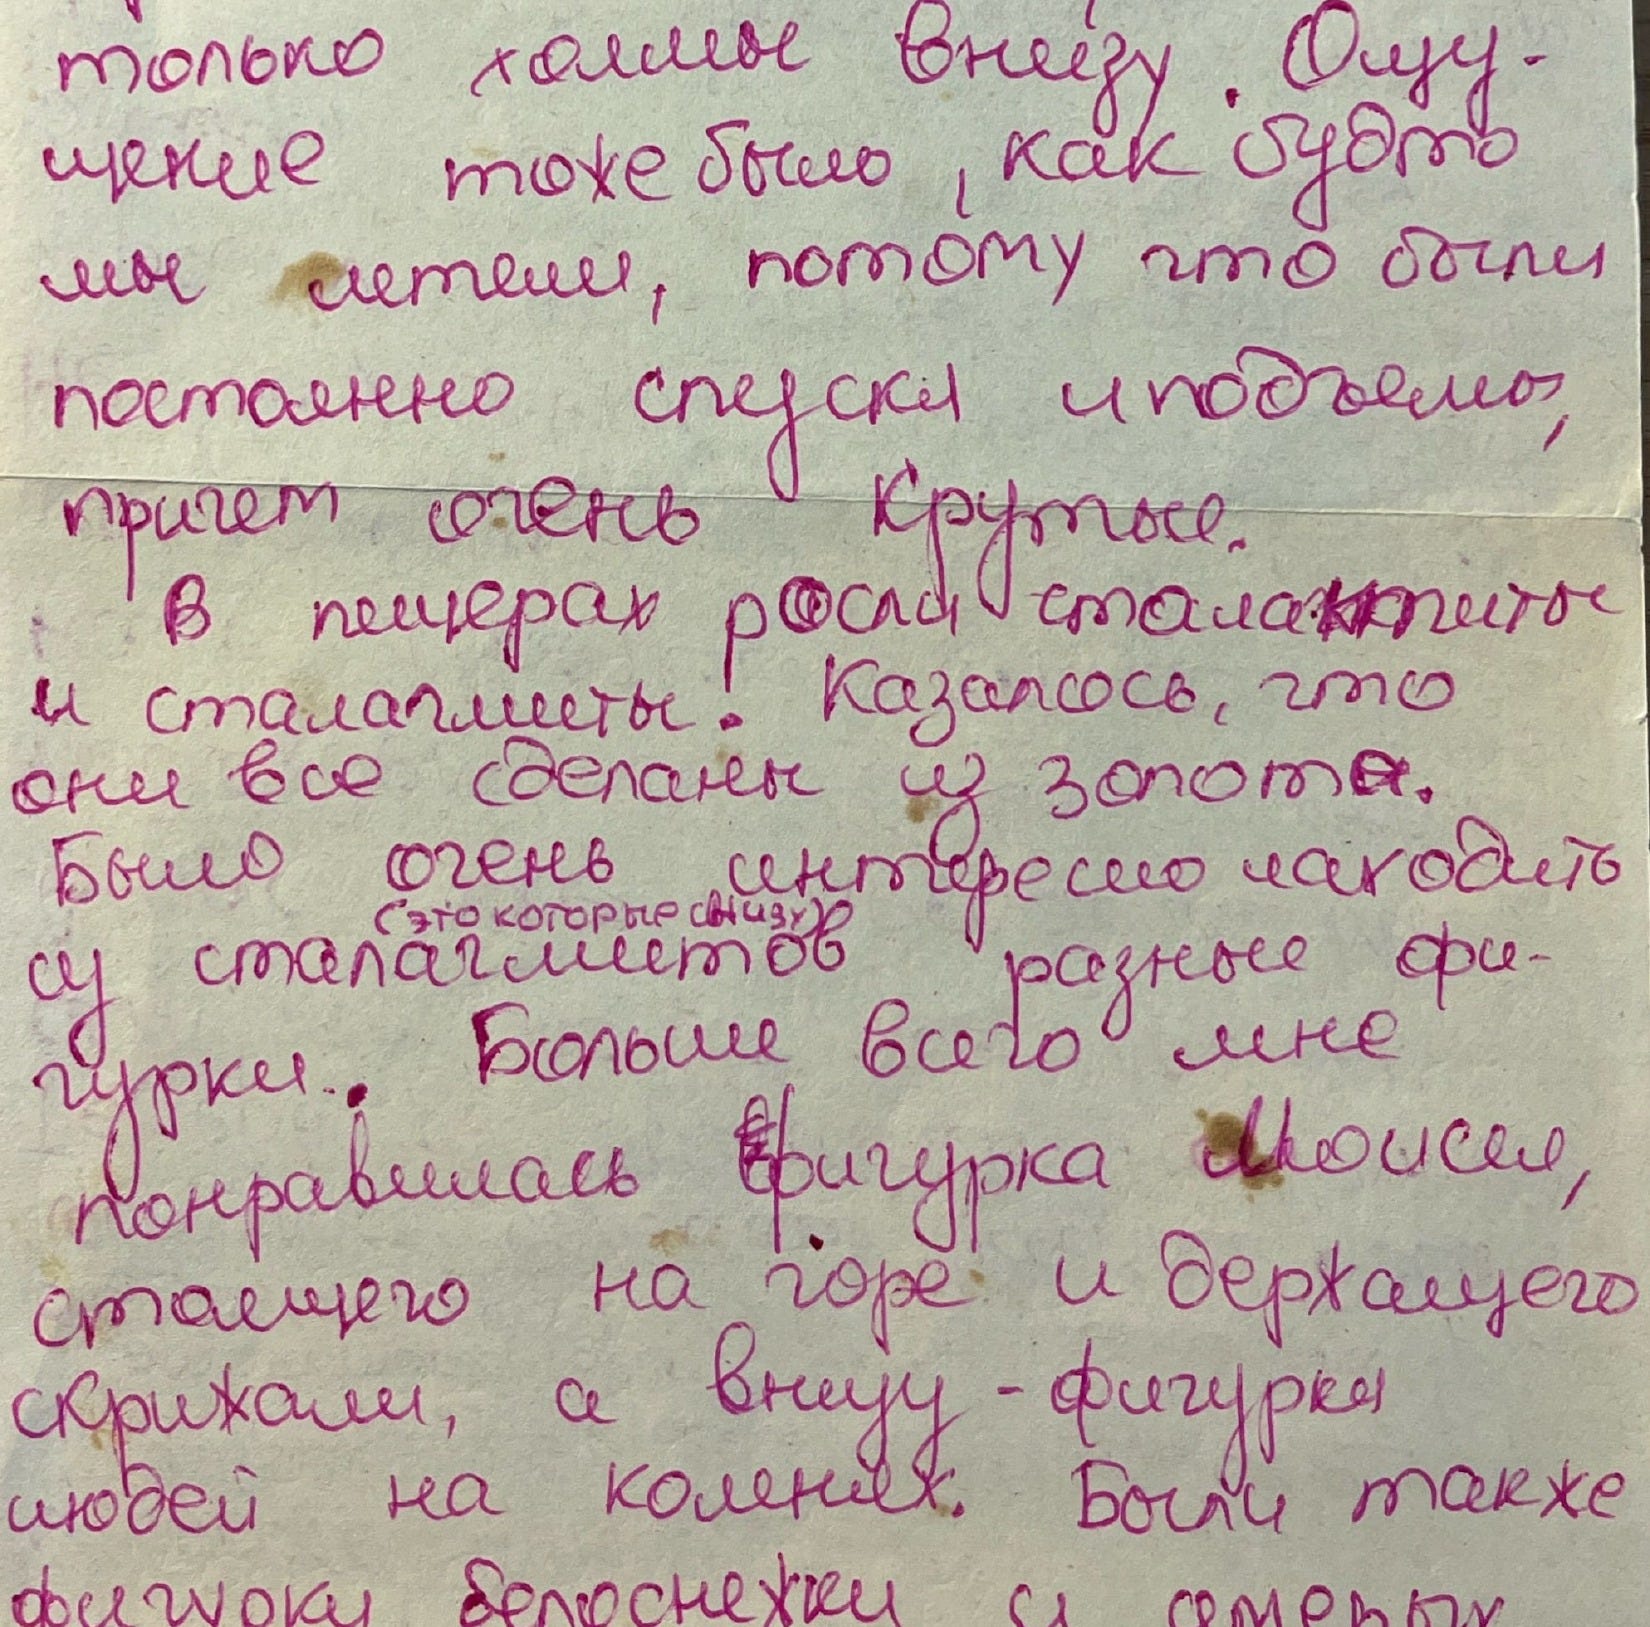 только холмы внизу. Ощу-
щение тоже было, как будто
мы летели, потому что были
постоянно спуски и подъемы,
причем очень крутые.
В пещерах росли сталактиты
и сталагмиты. Казалось, что
они все сделаны из золота.
Было очень интересно находить
(это которые снизу)
из сталагмитов разные фи-
гурки. Больше всего мне
понравилась фигурка Моисея,
стоящего на горе и держащего
скрижали, а внизу - фигурки
людей на коленях. Были также
фигурки белоснежки и